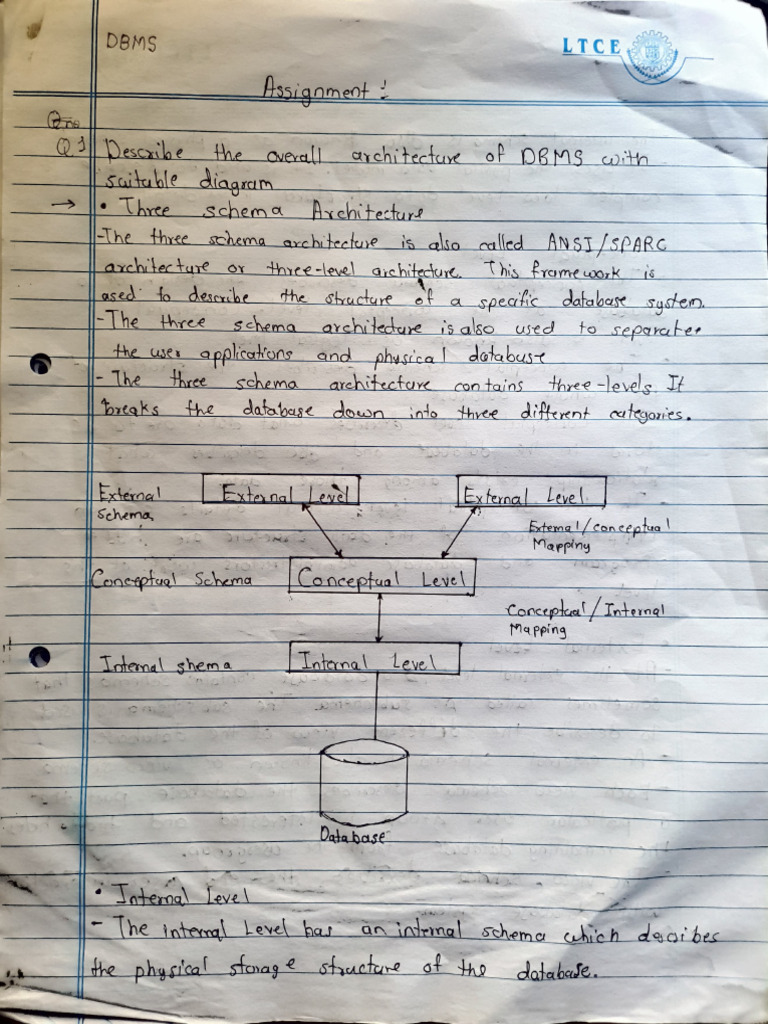 DBMS
LTCE
Assignment :
Q 1 Describe the overall architecture of DBMS with
suitable diagram
→ • Three schema Architecture
- The three schema architecture is also called ANSI/SPARC
architecture or three-level architecture. This framework is
used to describe the structure of a specific database system.
- The three schema architecture is also used to separate
the user applications and physical database
- The three schema architecture contains three-levels. It
breaks the database down into three different categories.
External Schema
External Level
External Level
External/conceptual
Mapping
Conceptual Schema
Conceptual Level
Conceptual/Internal
Mapping
Internal shema
Internal Level
Database
• Internal Level
- The internal Level has an internal schema which descibes
the physical storage structure of the database.